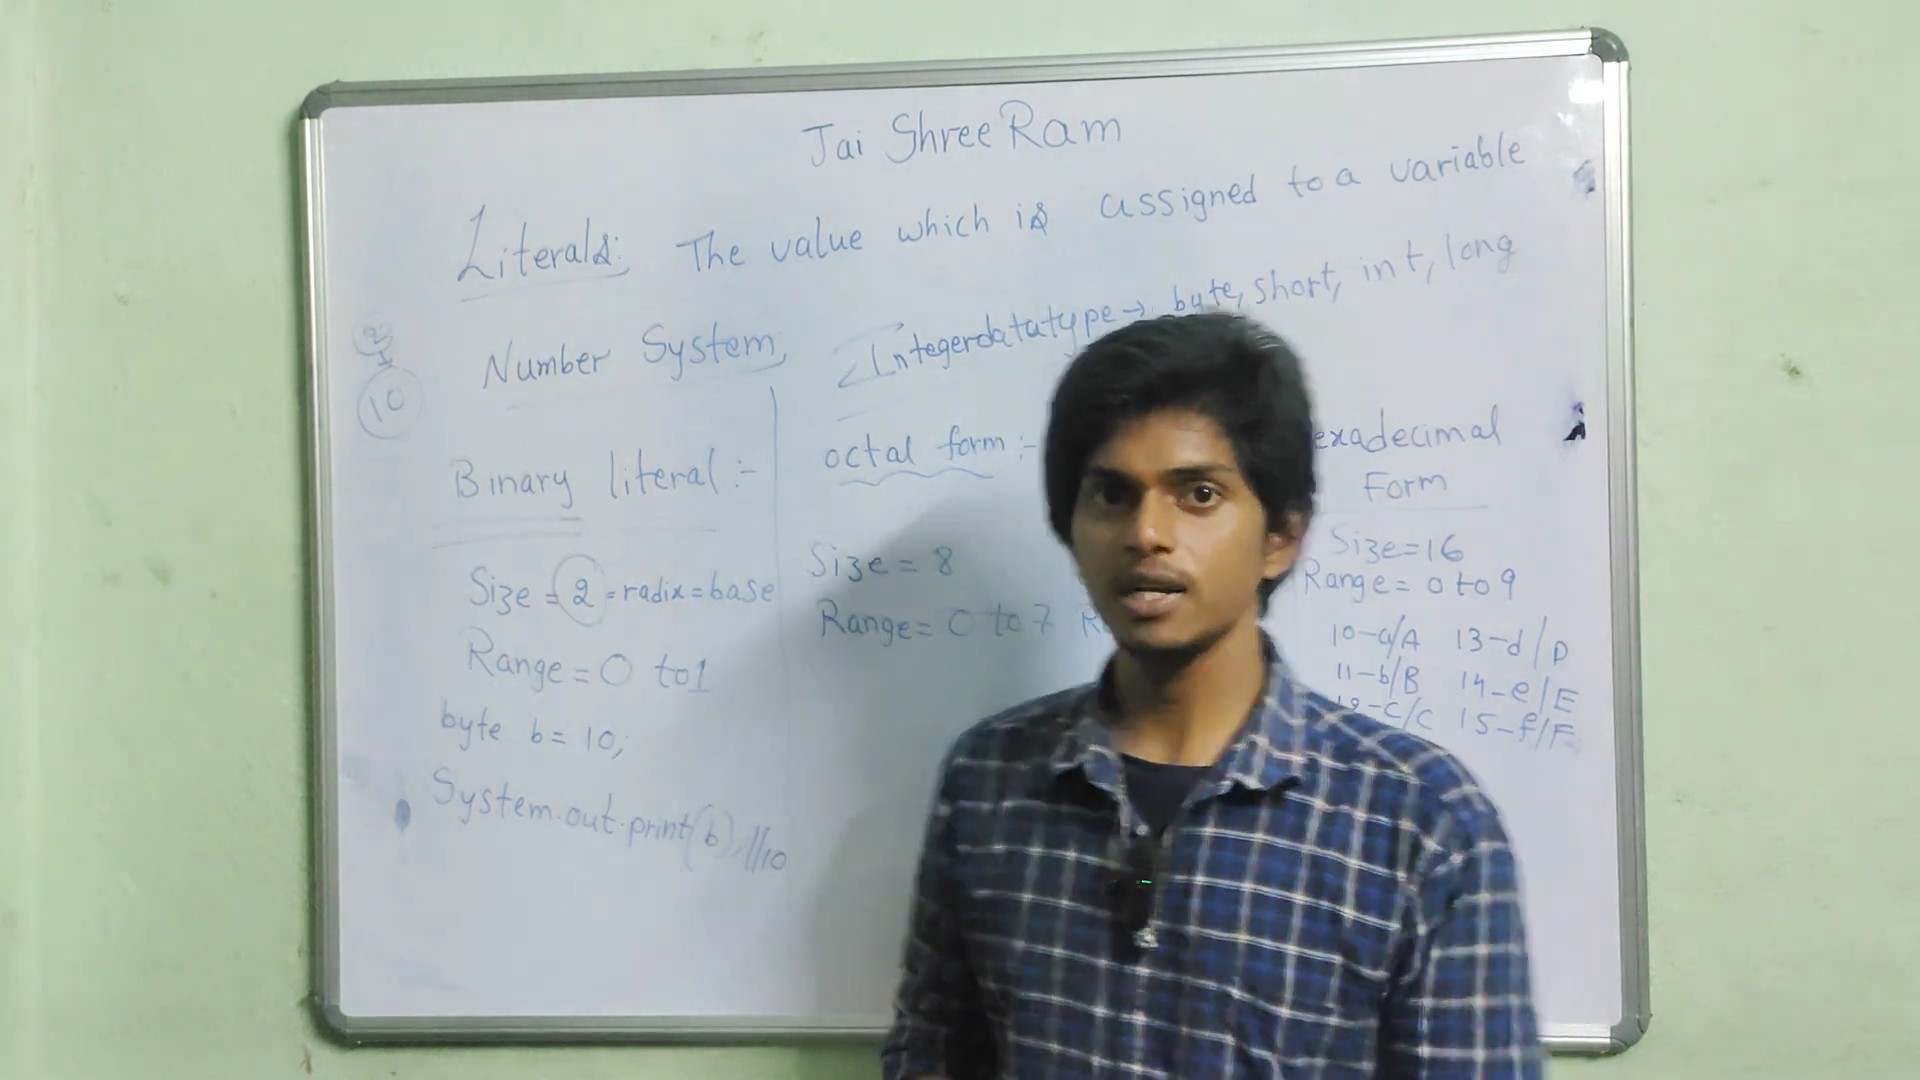 Jai Shree Ram
Literals: The value which is assigned to a variable
Number System, Integerdatatype→ byte, short, int, long
2
10
Binary literal :-
Size = 2 = radix = base
Range = 0 to 1
byte b = 10;
System.out.print(b); //10
octal form :-
Size = 8
Range = 0 to 7
exadecimal
Form
Size = 16
Range = 0 to 9
10-a/A 13-d/D
11-b/B 14-e/E
-c/C 15-f/F